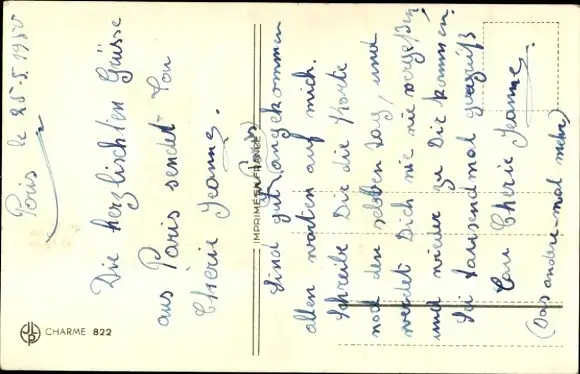 Paris le 25.5.1950
Die herzlischten Grüsse
aus Paris sendet Ton
Chérie Jeanne.
CHARME 822
IMPRIMÉ EN FRANCE
Sind gut angekommen
(in Paris)
allen warten auf mich.
Schreibe Dir die Karte
noch den selben tag, und
werdet Dich nie nie vergeßen,
und wieder zu Dir kommen.
Sei tausendmal gegrüß
Ton Chérie Jeanne.
(Das andere-mal mehr,)